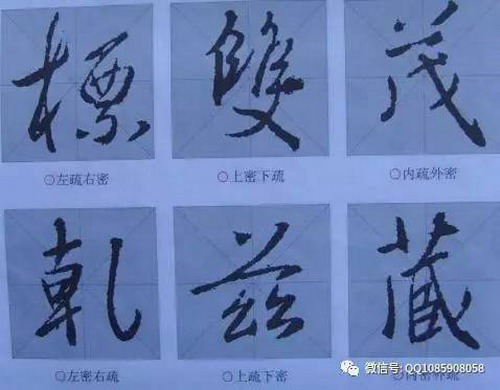 標 雙 茂
○左疏右密 ○上密下疏 ○内疏外密
乾 兹 藏
○左密右疏 ○上疏下密 ○内密外疏
微信号: QQ1085908058